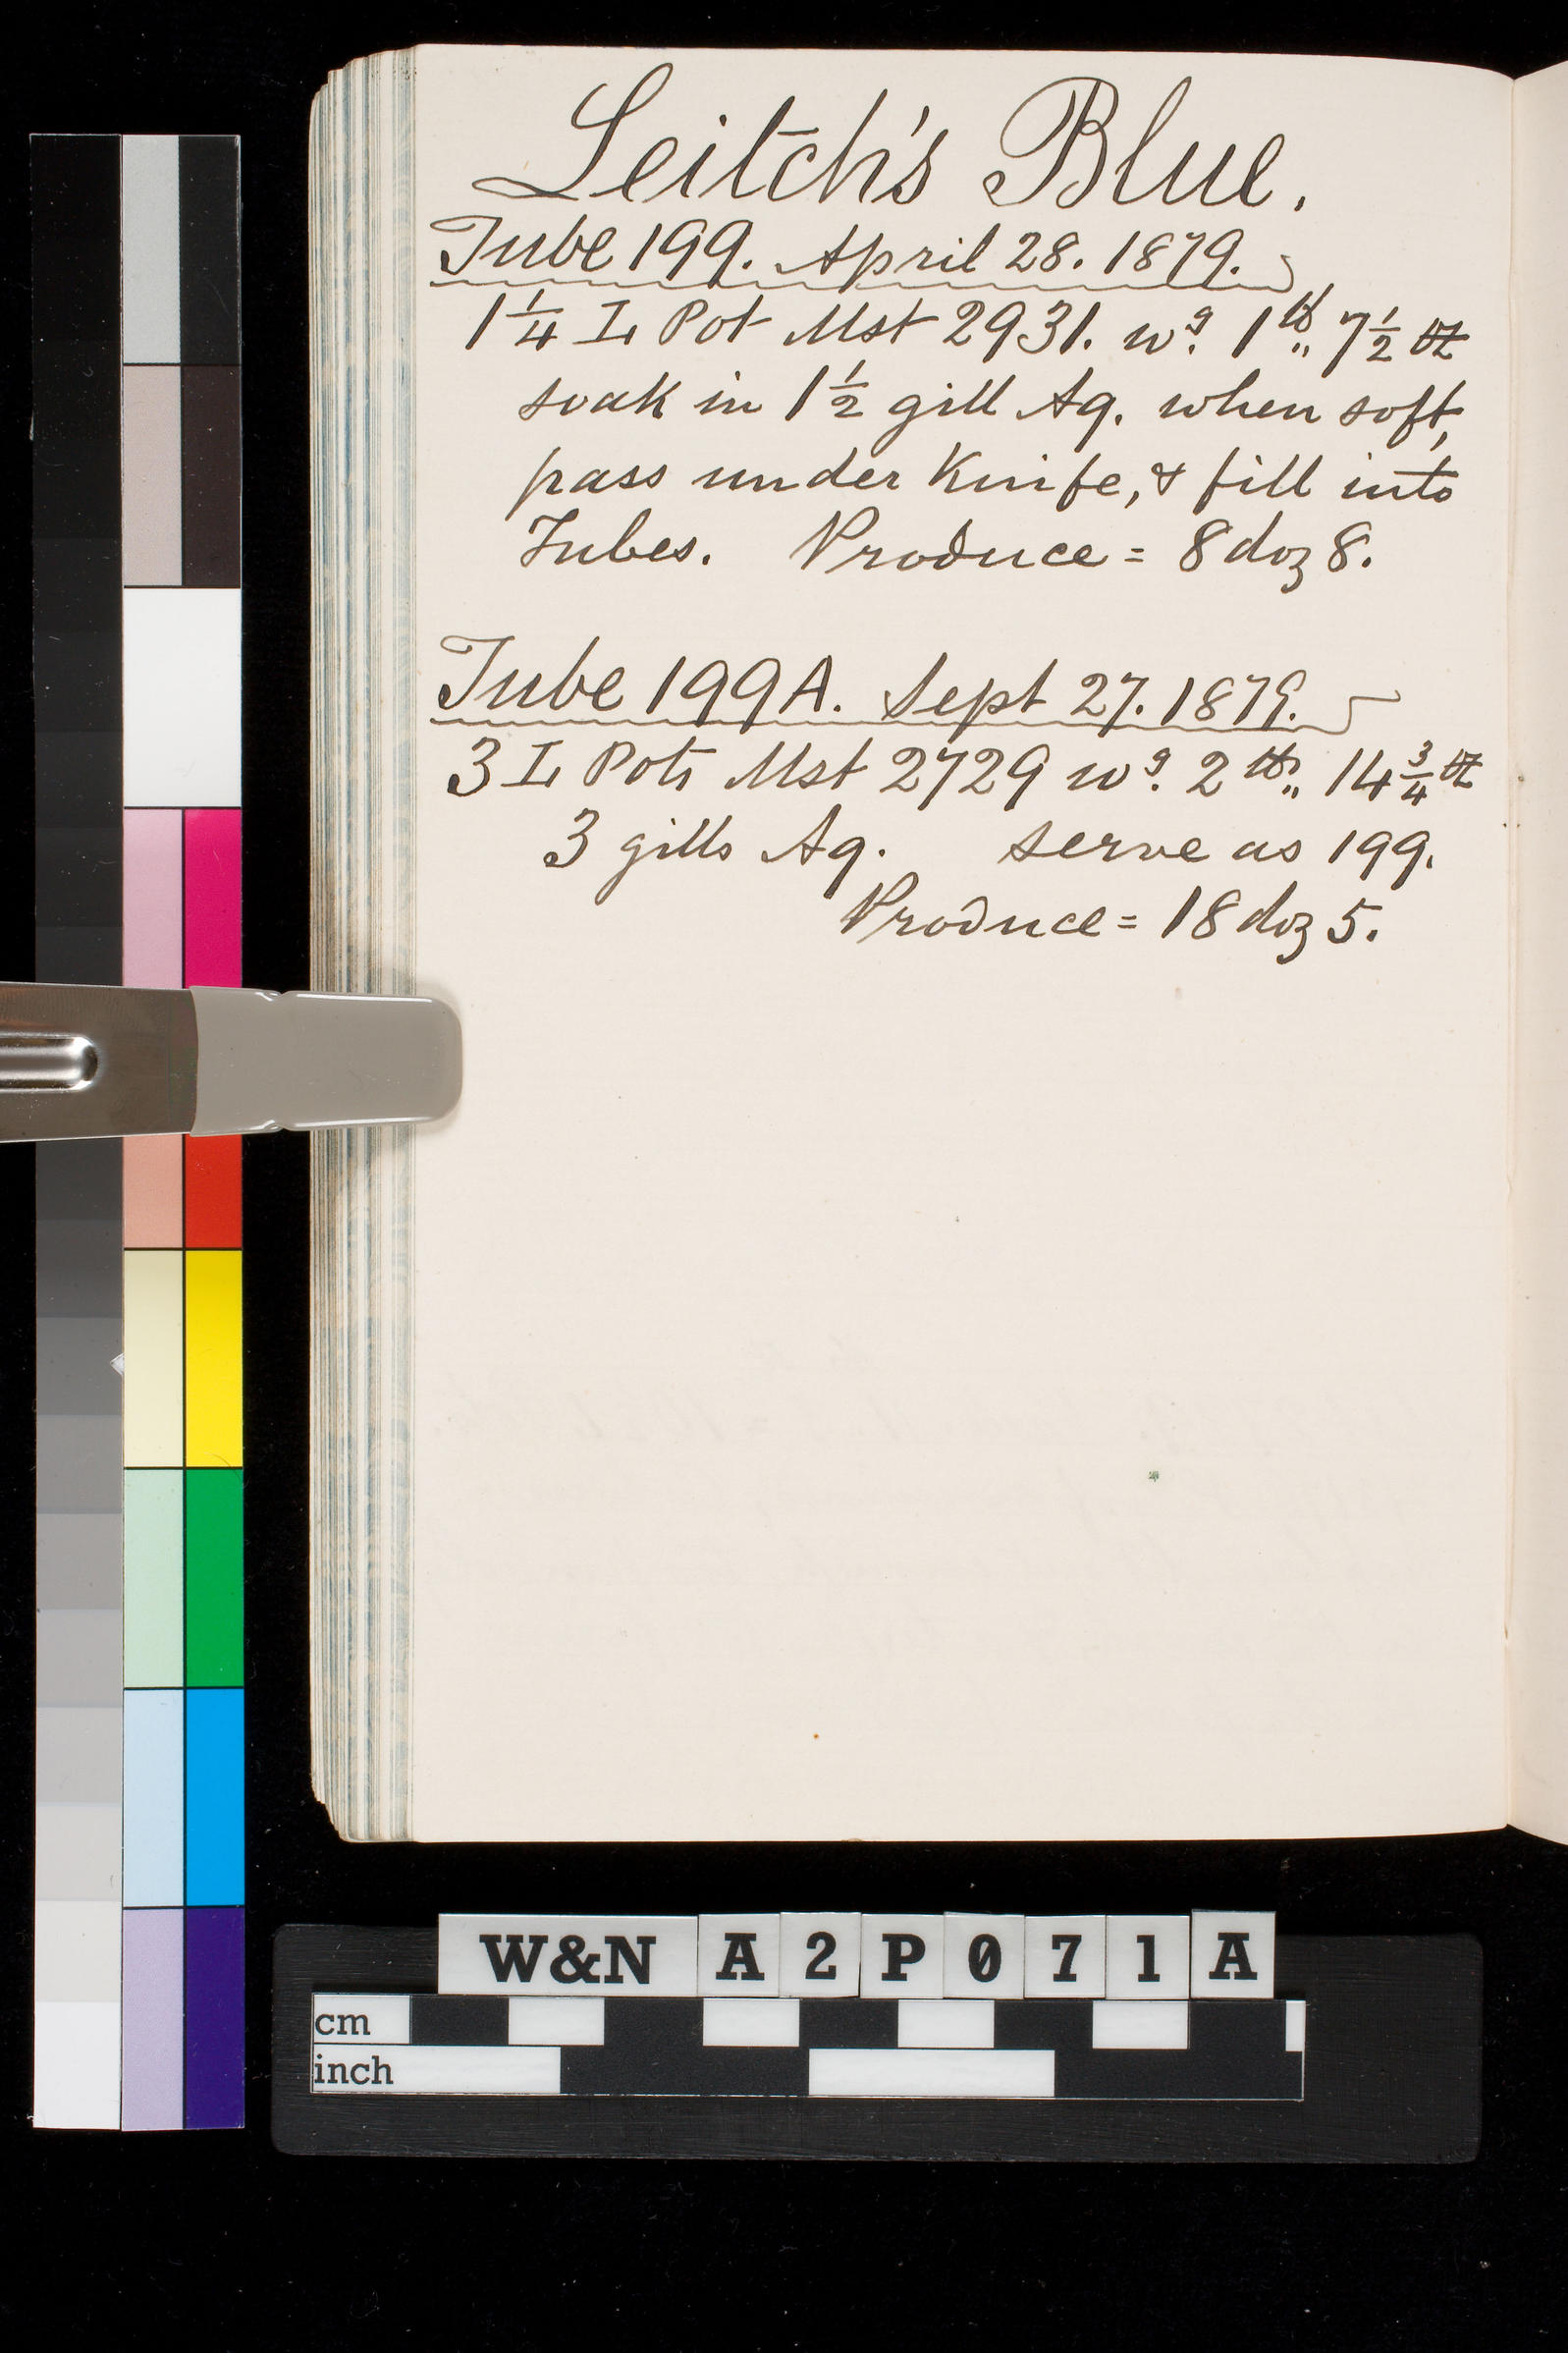 Leitch's Blue.
Tube 199. April 28. 1879.
1 1/4 L Pot Mst 2931. wg. 1 lb,, 7 1/2 oz
soak in 1 1/2 gill Aq. when soft,
pass under Knife, & fill into
Tubes. Produce = 8 doz 8.
Tube 199A. Sept 27. 1879.
3 L Pots Mst 2729 wg. 2 lbs,, 14 3/4 oz
3 gills Aq. serve as 199.
Produce = 18 doz 5.
W&N A2P071A
cm
inch